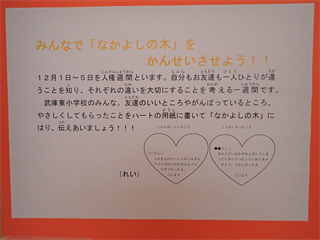 みんなで「なかよしの木」を
かんせいさせよう！！
12月1日～5日を人権週間といます。自分もお友達も一人ひとりが違
うことを知り、それぞれの違いを大切にすることを考える一週間です。
武庫東小学校のみんな。友達のいいところやがんばっているところ、
やさしくしてもらったことをハートの用紙に書いて「なかよしの木」に
はり、伝えあいましょう！！！
（れい）